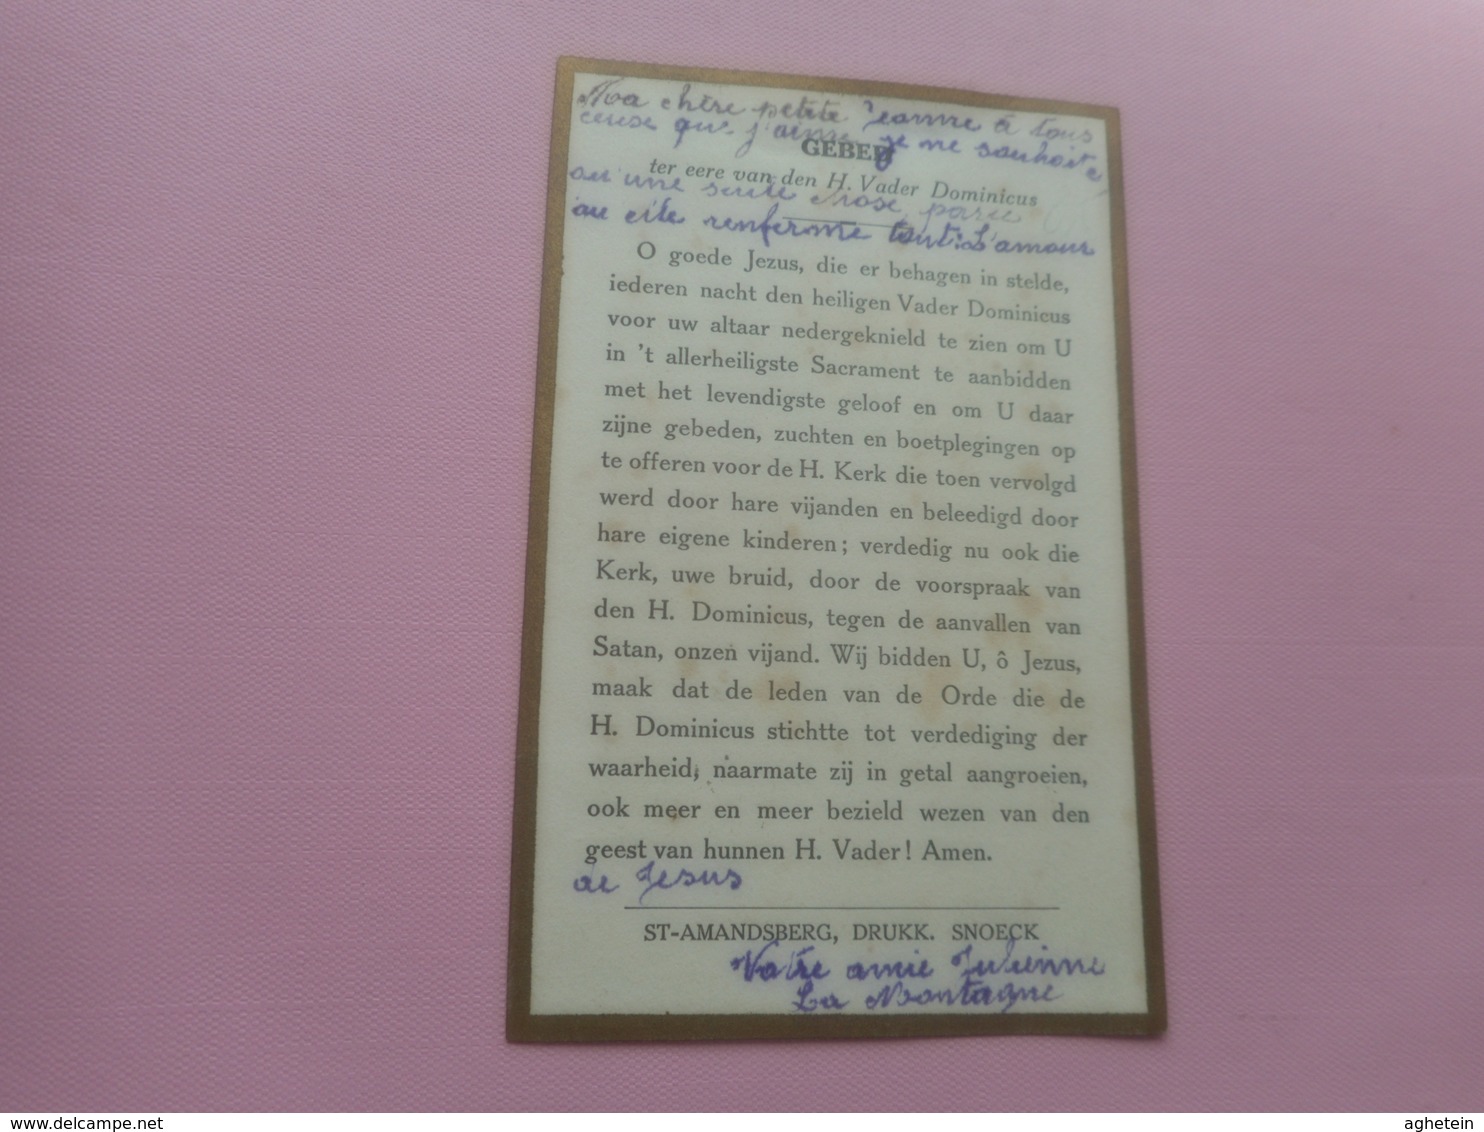 Ma chère petite Jeanne à tous
ceuse que j'aime je ne souhaite
GEBED
ter eere van den H. Vader Dominicus
qu'une seule chose, parce
au elle renferme tout: L'amour
O goede Jezus, die er behagen in stelde,
iederen nacht den heiligen Vader Dominicus
voor uw altaar nedergeknield te zien om U
in 't allerheiligste Sacrament te aanbidden
met het levendigste geloof en om U daar
zijne gebeden, zuchten en boetplegingen op
te offeren voor de H. Kerk die toen vervolgd
werd door hare vijanden en beleedigd door
hare eigene kinderen; verdedig nu ook die
Kerk, uwe bruid, door de voorspraak van
den H. Dominicus, tegen de aanvallen van
Satan, onzen vijand. Wij bidden U, ô Jezus,
maak dat de leden van de Orde die de
H. Dominicus stichtte tot verdediging der
waarheid, naarmate zij in getal aangroeien,
ook meer en meer bezield wezen van den
geest van hunnen H. Vader! Amen.
de Jesus
ST-AMANDSBERG, DRUKK. SNOECK
Votre amie Julienne
La Montagne
aghetein